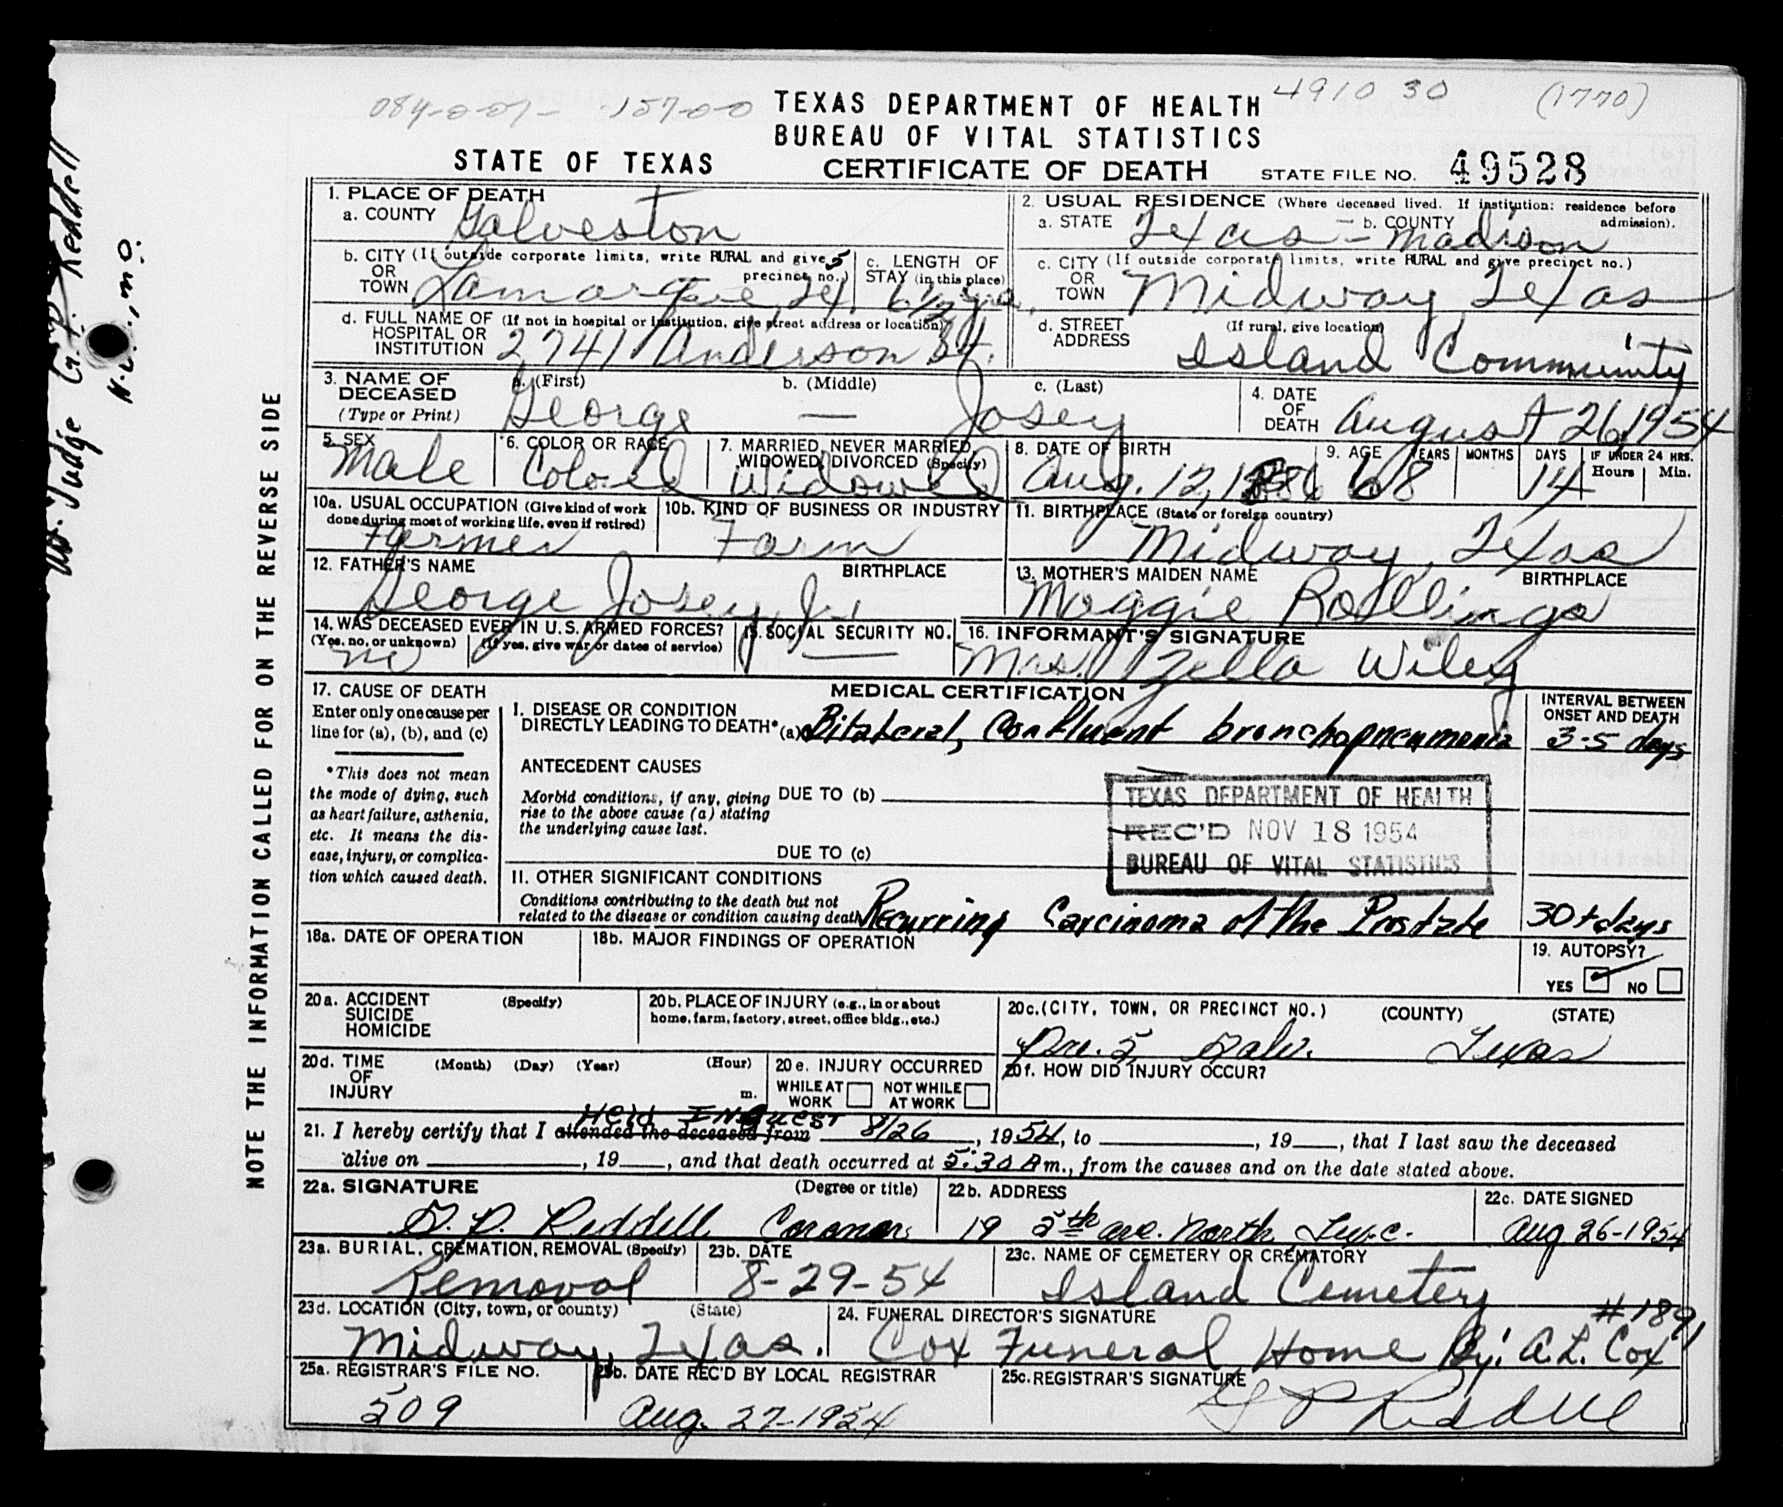 4910 30 (1770)
TEXAS DEPARTMENT OF HEALTH
BUREAU OF VITAL STATISTICS
STATE OF TEXAS CERTIFICATE OF DEATH STATE FILE NO. 49528
1. PLACE OF DEATH
a. COUNTY Galveston
2. USUAL RESIDENCE (Where deceased lived. If institution: residence before admission).
a. STATE Texas — b. COUNTY Madison
b. CITY (If outside corporate limits, write RURAL and give precinct no.) 5
OR
TOWN Lamarque, Tex.
c. LENGTH OF
STAY (in this place)
6 1/2 yrs.
c. CITY (If outside corporate limits, write RURAL and give precinct no.)
OR
TOWN Midway, Texas
d. FULL NAME OF (If not in hospital or institution, give street address or location)
HOSPITAL OR
INSTITUTION 2741 Anderson St.
d. STREET (If rural, give location)
ADDRESS Island Community
3. NAME OF DECEASED (Type or Print)
a. (First) b. (Middle) c. (Last)
George — Josey
4. DATE OF DEATH August 26, 1954
5. SEX
Male
6. COLOR OR RACE
Colored
7. MARRIED, NEVER MARRIED, WIDOWED, DIVORCED (Specify)
Widowed
8. DATE OF BIRTH
Aug. 12, 1886
9. AGE YEARS MONTHS DAYS IF UNDER 24 HRS. Hours Min.
68 14
10a. USUAL OCCUPATION (Give kind of work done during most of working life, even if retired)
Farmer
10b. KIND OF BUSINESS OR INDUSTRY
Farm
11. BIRTHPLACE (State or foreign country)
Midway, Texas
12. FATHER'S NAME BIRTHPLACE
George Josey, Jr.
13. MOTHER'S MAIDEN NAME BIRTHPLACE
Maggie Rollings
14. WAS DECEASED EVER IN U.S. ARMED FORCES?
(Yes, no, or unknown) (If yes, give war or dates of service)
no
15. SOCIAL SECURITY NO.
—
16. INFORMANT'S SIGNATURE
Mrs. Zella Wiley
17. CAUSE OF DEATH
Enter only one cause per line for (a), (b), and (c)
*This does not mean the mode of dying, such as heart failure, asthenia, etc. It means the disease, injury, or complication which caused death.
MEDICAL CERTIFICATION
INTERVAL BETWEEN ONSET AND DEATH
I. DISEASE OR CONDITION
DIRECTLY LEADING TO DEATH* (a) Bilateral, Confluent bronchopneumonia 3-5 days
ANTECEDENT CAUSES
Morbid conditions, if any, giving rise to the above cause (a) stating the underlying cause last.
DUE TO (b)
DUE TO (c)
TEXAS DEPARTMENT OF HEALTH
REC'D NOV 18 1954
BUREAU OF VITAL STATISTICS
II. OTHER SIGNIFICANT CONDITIONS
Conditions contributing to the death but not related to the disease or condition causing death. Recurring Carcinoma of the Prostate 30+ days
18a. DATE OF OPERATION
18b. MAJOR FINDINGS OF OPERATION
19. AUTOPSY?
YES NO
20a. ACCIDENT SUICIDE HOMICIDE (Specify)
20b. PLACE OF INJURY (e.g., in or about home, farm, factory, street, office bldg., etc.)
20c. (CITY, TOWN, OR PRECINCT NO.) (COUNTY) (STATE)
Pre. 5 Galv. Texas
20d. TIME OF INJURY (Month) (Day) (Year) (Hour) m.
20e. INJURY OCCURRED
WHILE AT WORK NOT WHILE AT WORK
20f. HOW DID INJURY OCCUR?
Held INquest
21. I hereby certify that I attended the deceased from 8/26, 1954, to , 19 , that I last saw the deceased
alive on , 19 , and that death occurred at 5:30 A m., from the causes and on the date stated above.
22a. SIGNATURE (Degree or title)
G. P. Reddell Coroner
22b. ADDRESS
19 5th ave. North
22c. DATE SIGNED
Aug 26-1954
23a. BURIAL, CREMATION, REMOVAL (Specify)
Removal
23b. DATE
8-29-54
23c. NAME OF CEMETERY OR CREMATORY
Island Cemetery
23d. LOCATION (City, town, or county) (State)
Midway, Texas.
24. FUNERAL DIRECTOR'S SIGNATURE #1891
Cox Funeral Home By: A.L. Cox
25a. REGISTRAR'S FILE NO.
509
25b. DATE REC'D BY LOCAL REGISTRAR
Aug. 27-1954
25c. REGISTRAR'S SIGNATURE
G P Reddell
NOTE THE INFORMATION CALLED FOR ON THE REVERSE SIDE
Judge G.P. Reddell